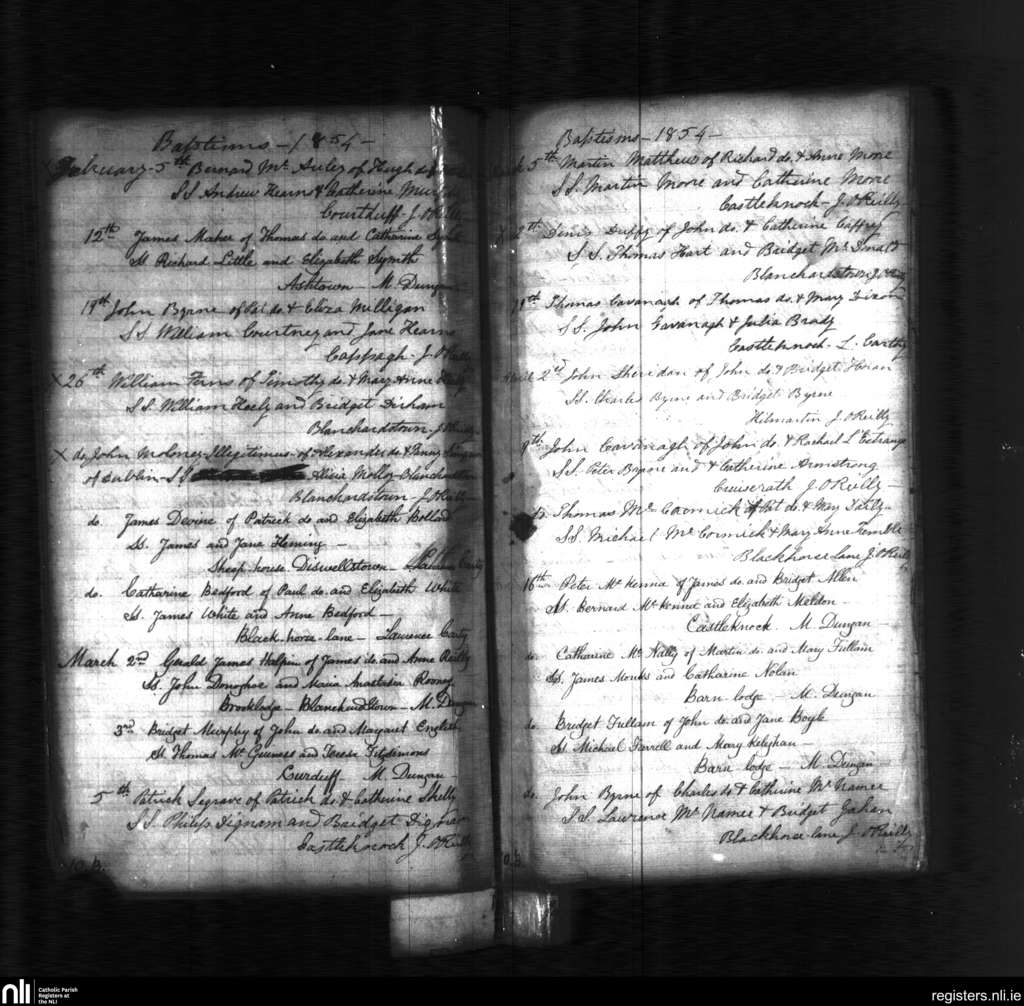 Baptisms - 1854 -
February 5th Bernard Mc Auley of Hugh do
SS Andrew Hearn & Katherine
Courtduff - J. O'Reilly
12th James Maher of Thomas do and Catharine
SS Richard Little and Elizabeth Smith
Ashtown - M. Dungan
19th John Byrne of Pat do & Eliza Milligan
SS William Courtney and Jane Hearns
Cappagh - J. O'Reilly
X 26th William Ferns of Timothy do & Mary Anne
SS. William Heely and Bridget
Blanchardstown - J. O'Reilly
X do John Moloney Illegitimus of Alexander do &
of Dublin - SS Alicia Molloy Blanchardstown
Blanchardstown - J. O'Reilly
do. James Devine of Patrick do and Elizabeth Bollard
Ss. James and Jane Fleming -
Sheep-house Diswellstown - Carty
do. Catharine Bedford of Paul do and Elizabeth White
Ss. James White and Anne Bedford -
Black-horse-lane - Laurence Carty
March 2nd Gerald James Halpin of James do and Anne Reilly
Ss. John Donoghoe and Maria Anastasia Rooney
Brooklodge - Blanchardstown - M. Dungan
3rd Bridget Murphy of John do and Margaret English
Ss Thomas Mc Guiness and Teresa Fitzsimons
M. Dungan -
5th Patrick Segrave of Patrick do & Catherine Skelly
SS. Philip Dignam and Bridget Dignam
Castleknock J. O'Reilly
Baptisms - 1854 -
5th Martin Matthew of Richard do. & Anne Moore
SS. Martin Moore and Catherine Moore
Castleknock - J. O'Reilly
Denis Duffy of John do. & Catherine Caffrey
S.S. Thomas Hart and Bridget Mc
Blanchardstown J. O'Reilly
19th Thomas Cavanagh of Thomas do. & Mary Dixon
SS. John Cavanagh & Julia Brady
Castleknock - L. Carthy
April 2nd John Sheridan of John do. & Bridget Horan
SS. Charles Byrne and Bridget Byrne
Kilmartin J. O'Reilly
9th John Cavanagh of John do. & Rachael L'Estrange
S.S. Peter Byrne and & Catherine Armstrong
Cruiserath J. O'Reilly -
Thomas Mc Cormick of Pat do. & Mary
SS. Michael Mc Cormick & Mary Anne Tremble
Blackhorse Lane J. O'Reilly
16th Peter Mc Kenna of James do. and Bridget Allen
Ss. Bernard Mc Kenna and Elizabeth Meldon -
Castleknock. M. Dungan -
do. Catharine Mc Nally of Martin do. and Mary Fullam
Ss. James Monks and Catharine Nolan
Barn-lodge - M. Dungan
do. Bridget Fullam of John do. and Jane Boyle
Ss Michael Farrell and Mary Keleghan -
Barn-lodge - M. Dungan
do. John Byrne of Charles do. & Catherine Mc Namee
S.S. Laurence Mc Namee & Bridget Gahan
Blackhorse-lane J. O'Reilly
nli
Catholic Parish
Registers at
the NLI
registers.nli.ie